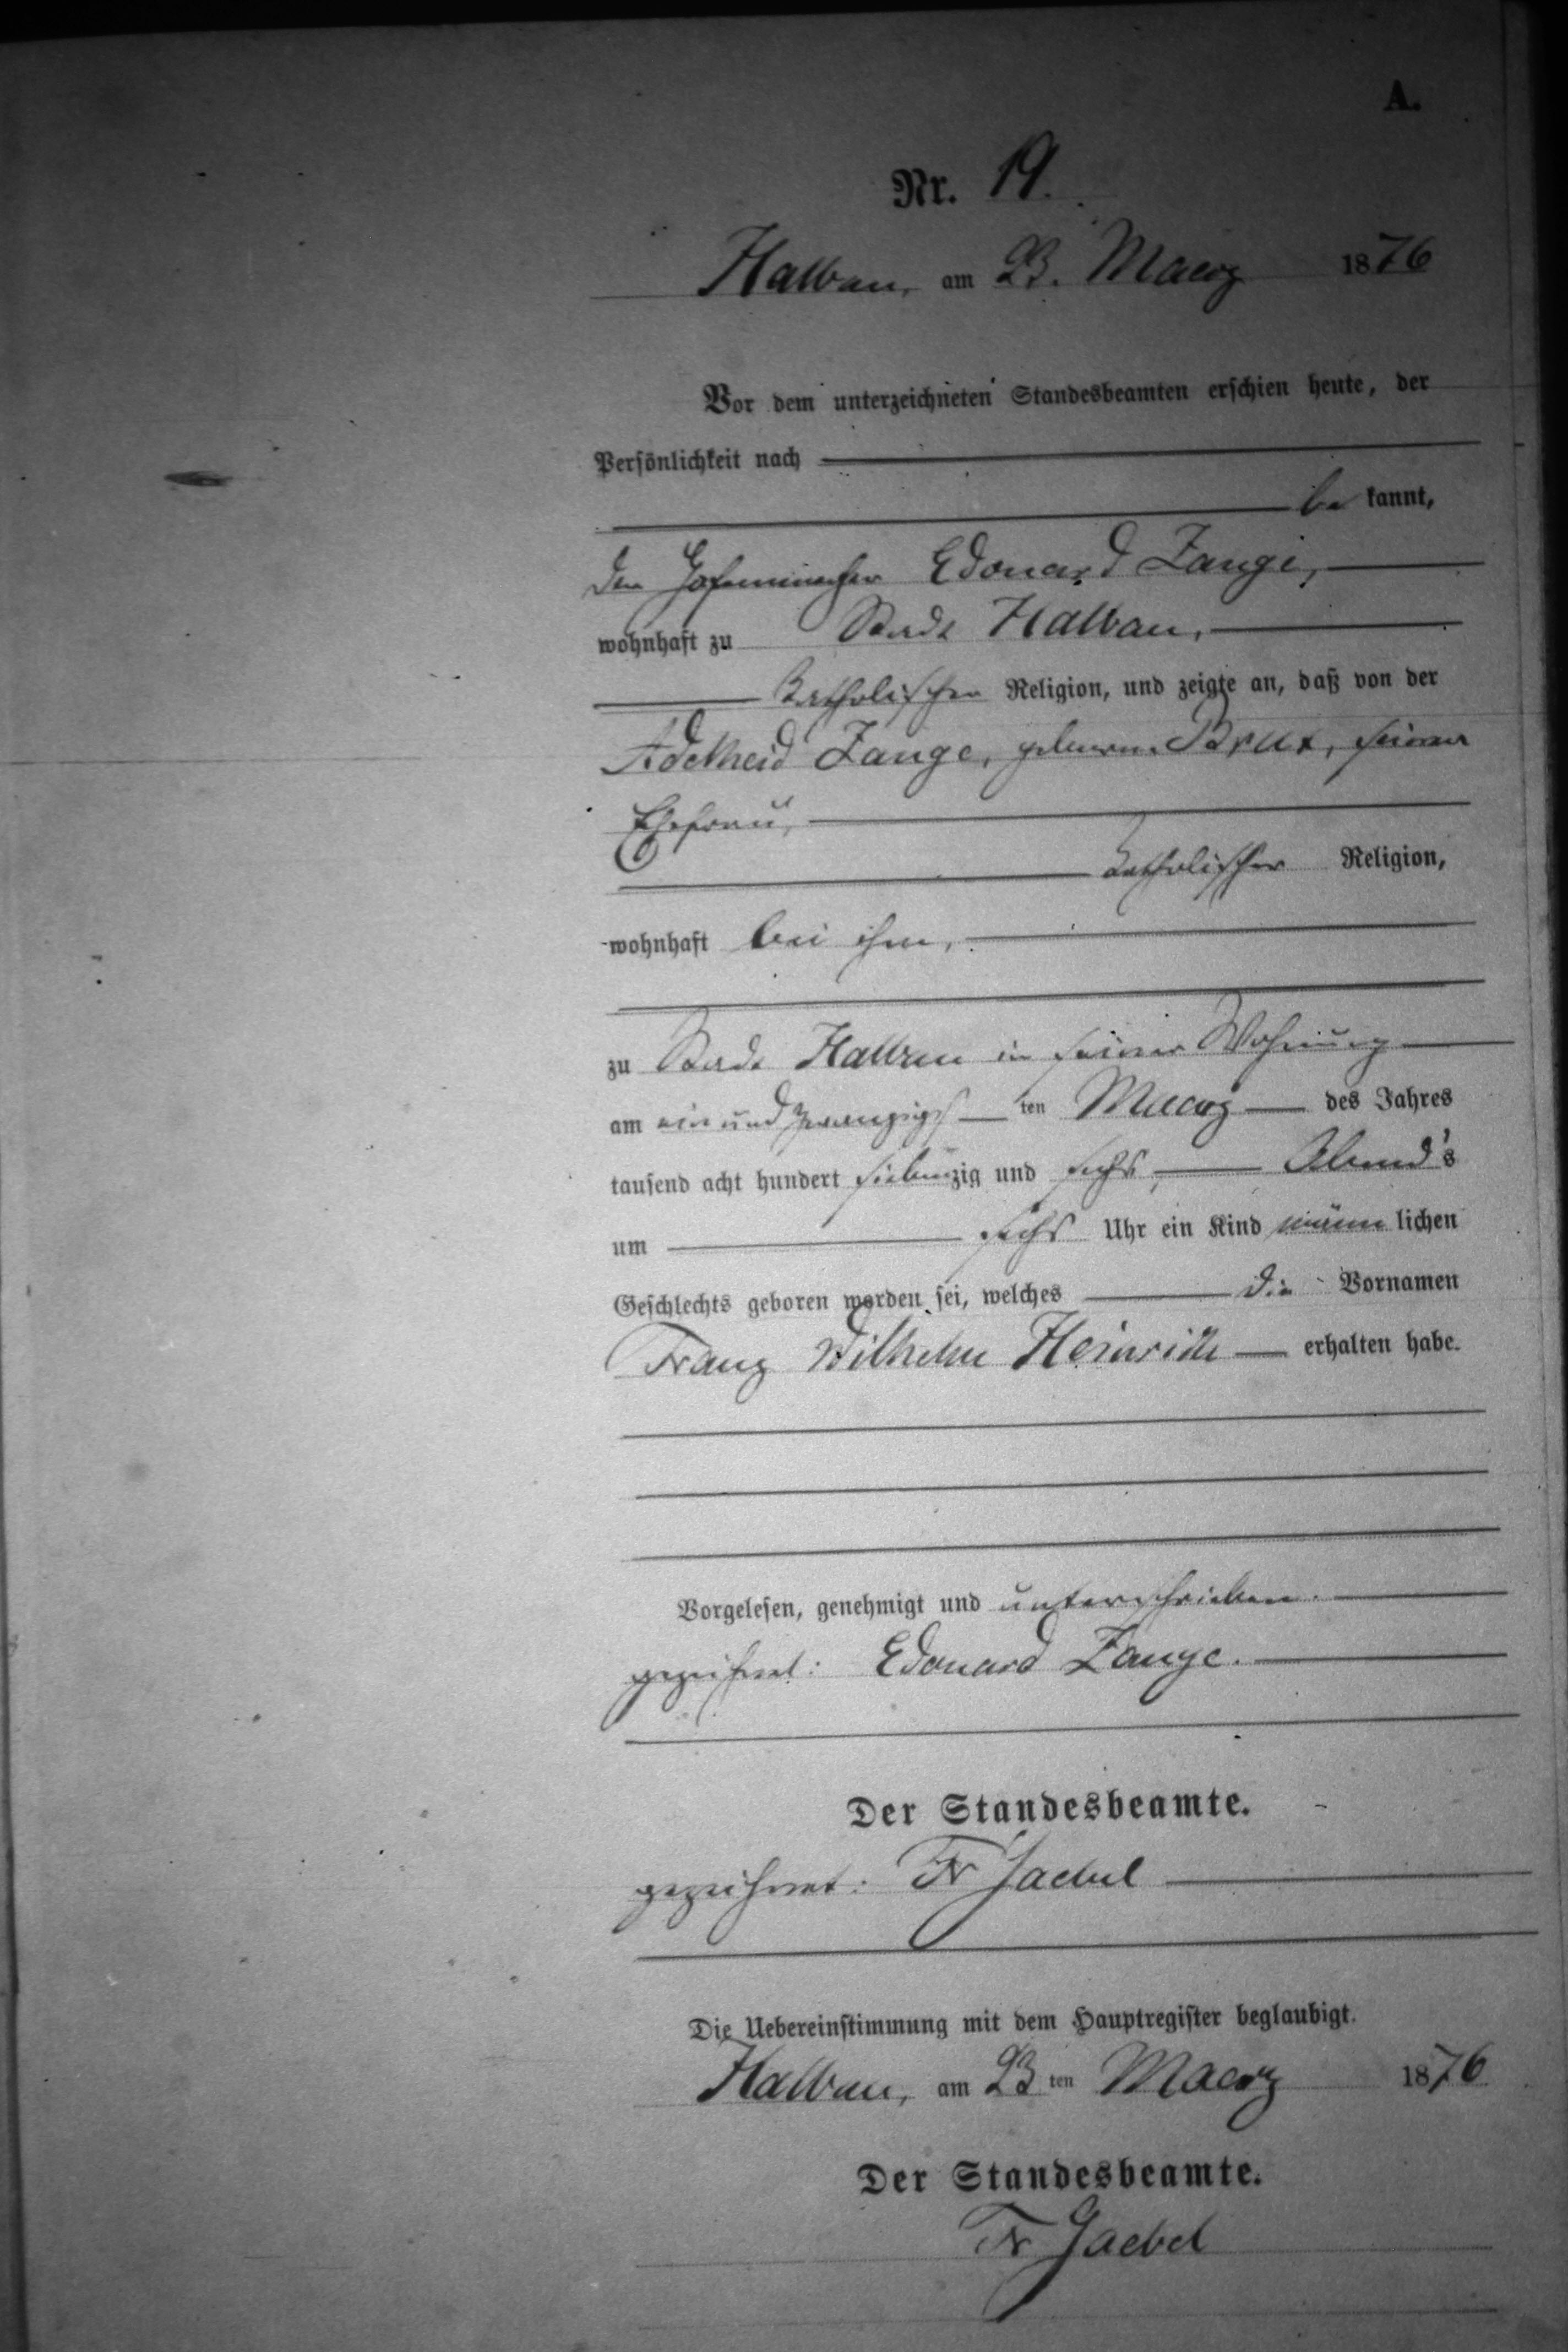 A.
Nr. 19.
Halbau, am 23. Maerz 1876
Vor dem unterzeichneten Standesbeamten erschien heute, der
Persönlichkeit nach
be kannt,
der Edouard Zange,
wohnhaft zu Stadt Halbau,
katholischer Religion, und zeigte an, daß von der
Adelheid Zange, geborene Brux, seiner
Ehefrau,
katholischer Religion,
wohnhaft bei ihm,
zu Stadt Halbau in seiner Wohnung
am ein und zwanzigs ten Maerz des Jahres
tausend acht hundert siebenzig und sechs, Abend's
um sechs Uhr ein Kind männ lichen
Geschlechts geboren worden sei, welches die Vornamen
Franz Wilhelm Heinrich erhalten habe.
Vorgelesen, genehmigt und unterschrieben.
gezeichnet: Edouard Zange.
Der Standesbeamte.
gezeichnet: Fr Jaebel
Die Uebereinstimmung mit dem Hauptregister beglaubigt.
Halbau, am 23 ten Maerz 1876
Der Standesbeamte.
Fr Jaebel